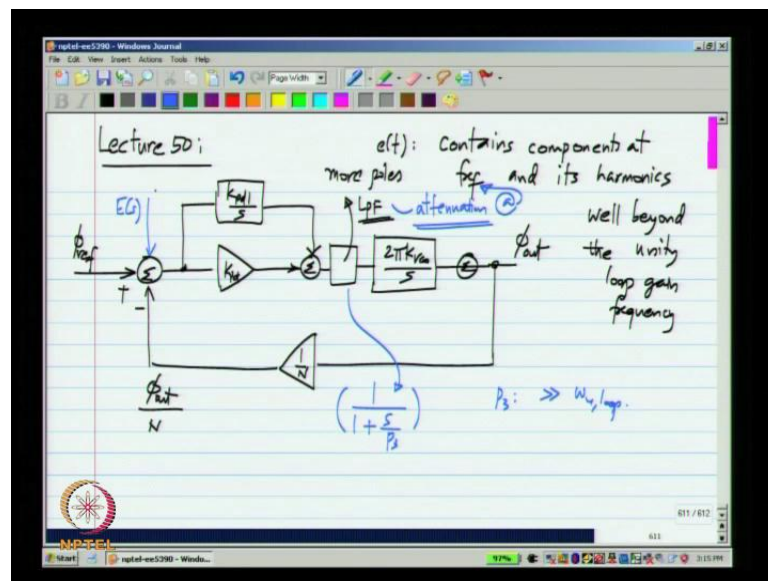 nptel-ee5390 - Windows Journal
File Edit View Insert Actions Tools Help
Page Width
B I
Lecture 50:
e(t): Contains components at
more poles fref and its harmonics
E(s)
LPF attenuation @
well beyond
the unity
loop gain
frequency
ϕref
+
-
Σ
Σ
2πKvco
s
Σ
ϕout
1
N
ϕout
N
(1 / (1 + s/p3))
p3: >> ωu,loop.
611 / 612
611
NPTEL
Start
nptel-ee5390 - Windo...
97%
3:15 PM